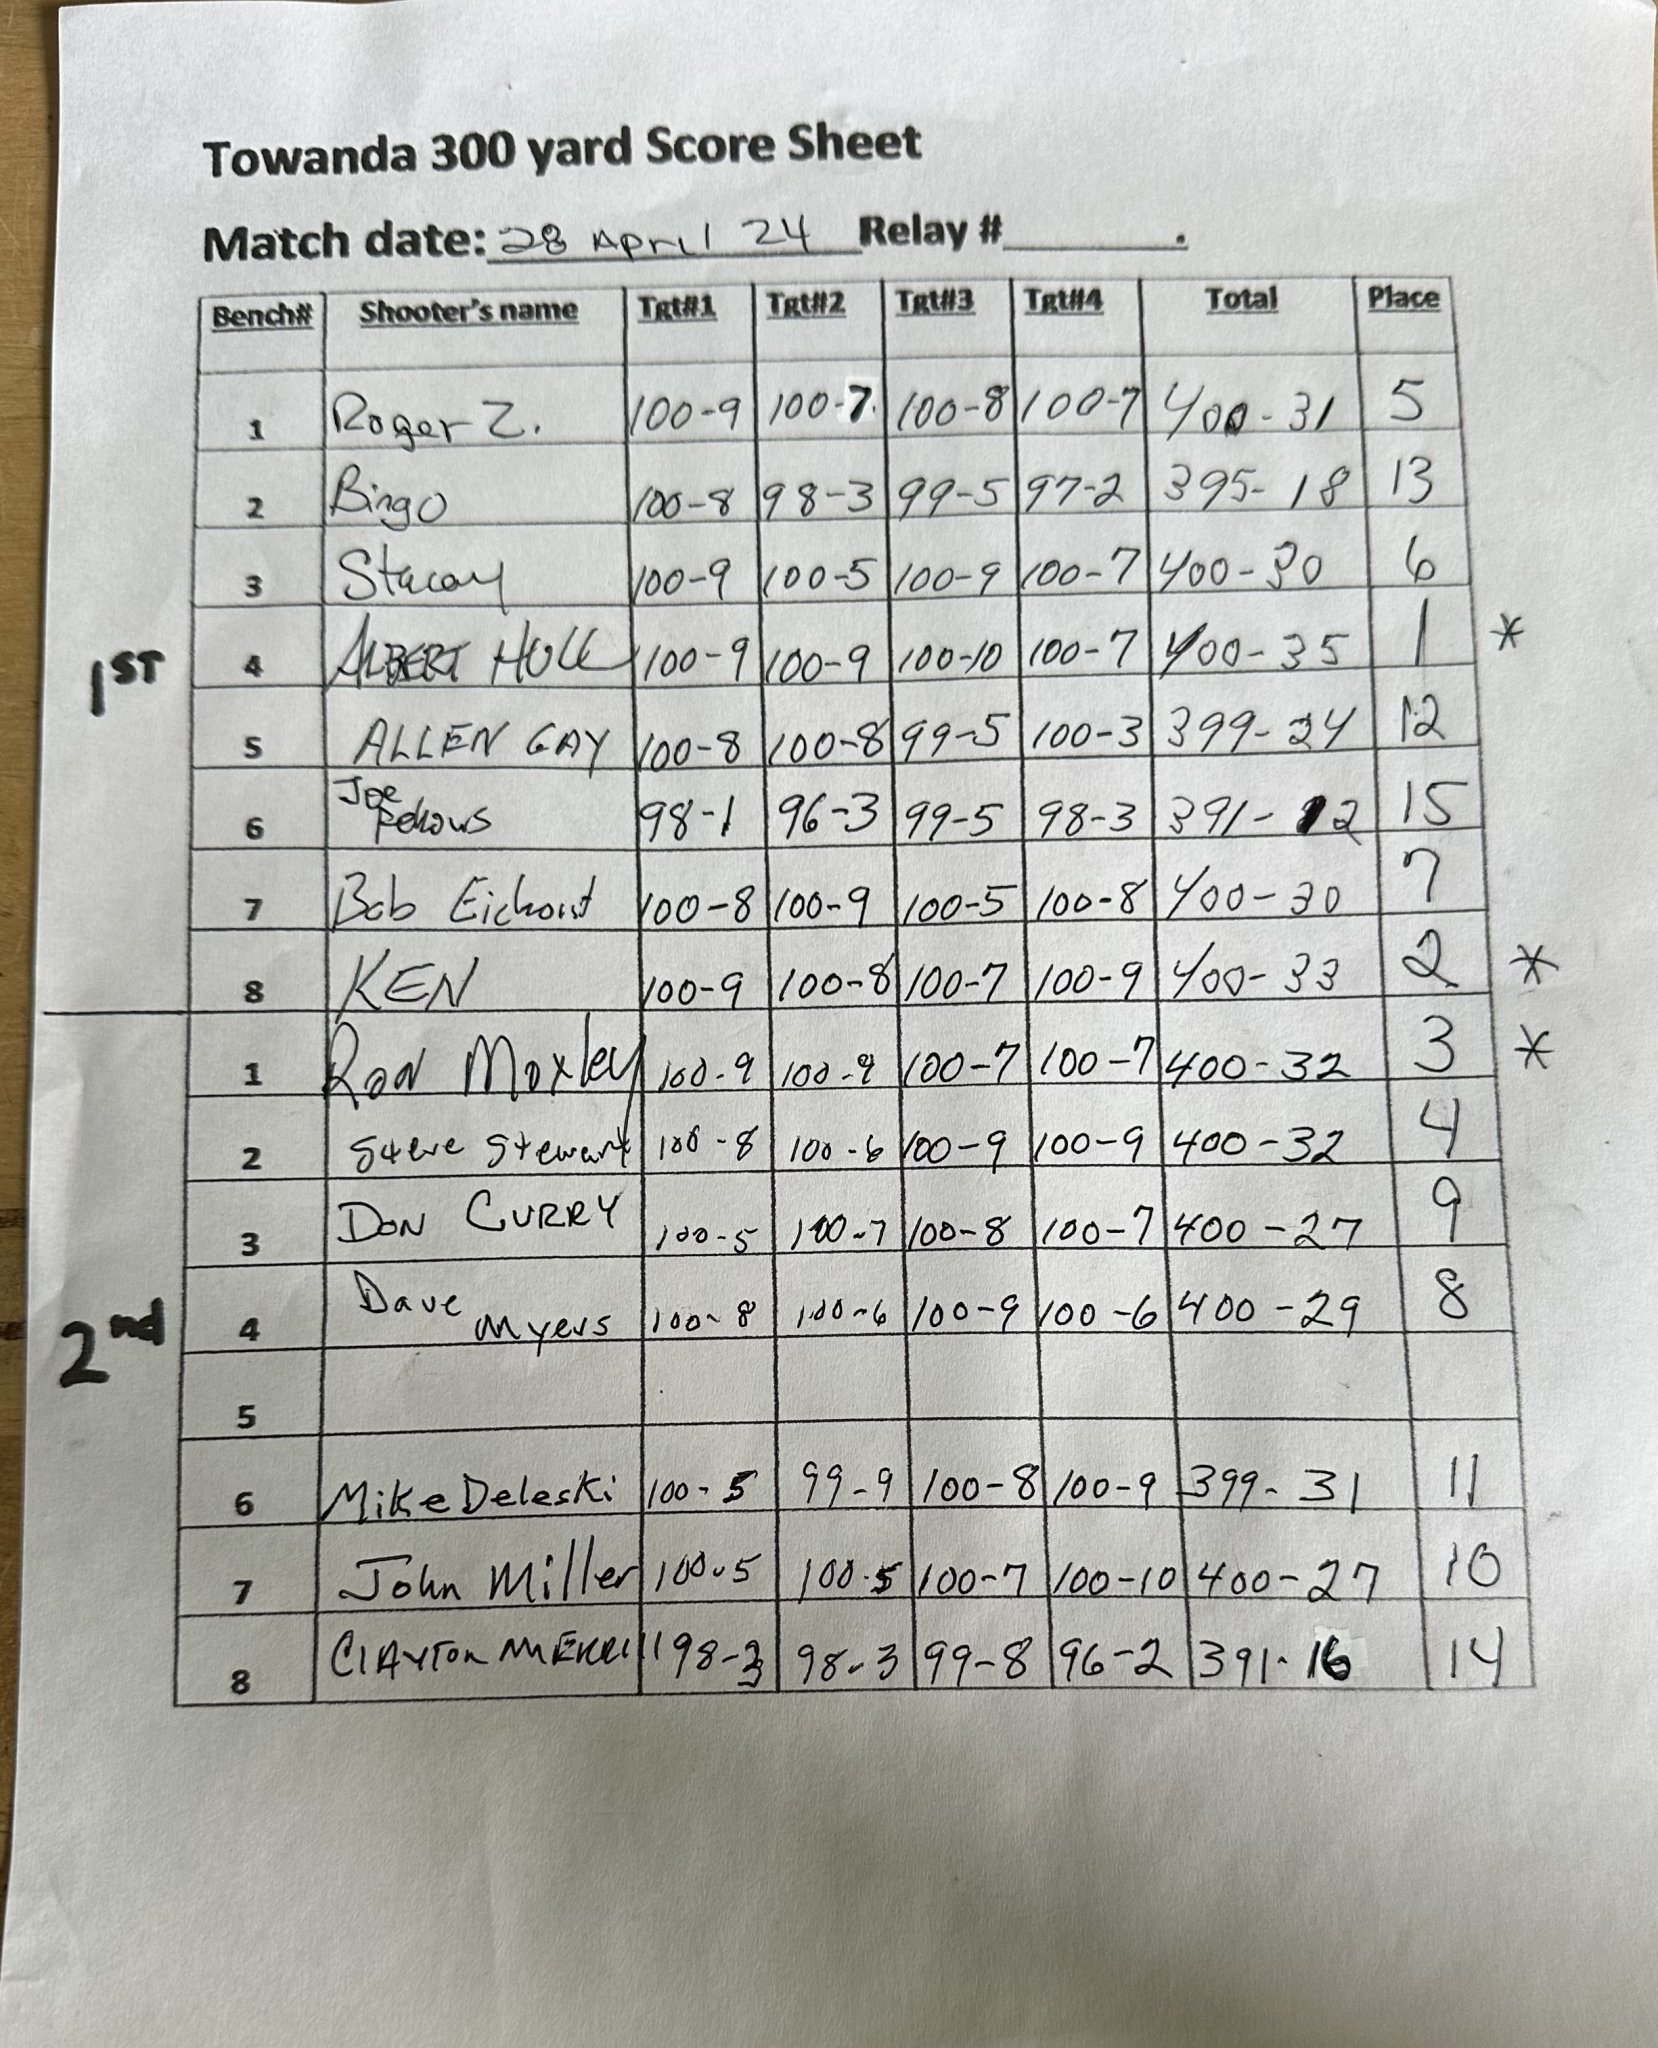 Towanda 300 yard Score Sheet
Match date: 28 April 24 Relay #________.
Bench# Shooter's name Tgt#1 Tgt#2 Tgt#3 Tgt#4 Total Place
1 Roger Z. 100-9 100-7 100-8 100-7 400-31 5
2 Bingo 100-8 98-3 99-5 97-2 395-18 13
3 Stacey 100-9 100-5 100-9 100-7 400-30 6
1ST
4 ALBERT HULL 100-9 100-9 100-10 100-7 400-35 1 *
5 ALLEN GAY 100-8 100-8 99-5 100-3 399-24 12
6 Joe Fellows 98-1 96-3 99-5 98-3 391-12 15
7 Bob Eickout 100-8 100-9 100-5 100-8 400-30 7
8 KEN 100-9 100-8 100-7 100-9 400-33 2 *
1 Ron Moxley 100-9 100-9 100-7 100-7 400-32 3 *
2 Steve Stewart 100-8 100-6 100-9 100-9 400-32 4
3 DON CURRY 100-5 100-7 100-8 100-7 400-27 9
2nd
4 Dave Myers 100-8 100-6 100-9 100-6 400-29 8
5
6 Mike Deleski 100-5 99-9 100-8 100-9 399-31 11
7 John Miller 100-5 100-5 100-7 100-10 400-27 10
8 CLAYTON MERRILL 98-3 98-3 99-8 96-2 391-16 14